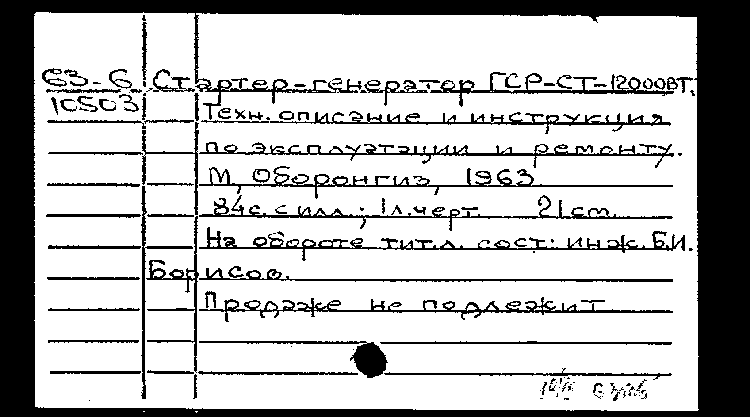 63-6 Стартер-генератор ГСР-СТ-12000ВТ.
10503 Техн. описание и инструкция
по эксплуатации и ремонту.
М, Оборонгиз, 1963.
84с. с илл.; 1л. черт. 21 cm.
На обороте тит. л. сост: инж. Б.И.
Борисов.
Продаже не подлежит